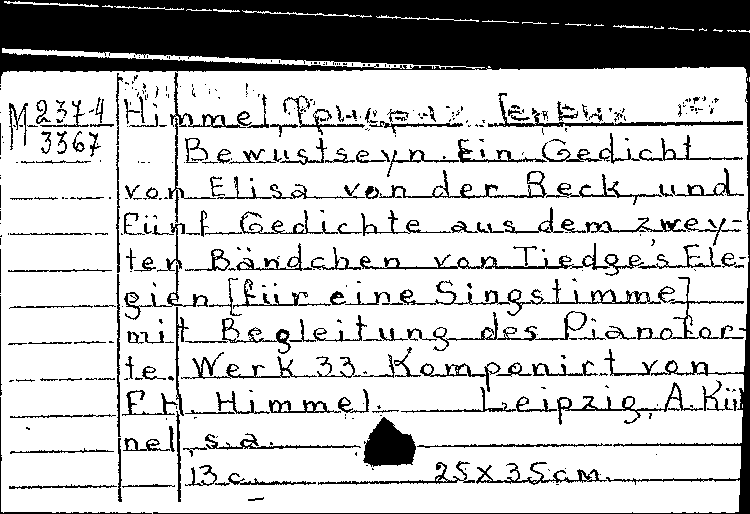 M 237-4
3367
Himmel, Фридрих Генрих
Bewustseyn. Ein Gedicht
von Elisa von der Reck, und
fünf Gedichte aus dem zwey-
ten Bändchen von Tiedge's Ele-
gien [für eine Singstimme]
mit Begleitung des Pianofor-
te. Werk 33. Komponirt von
F. H. Himmel. Leipzig, A. Küh
nel, s.a.
13 c. 25x35cm.